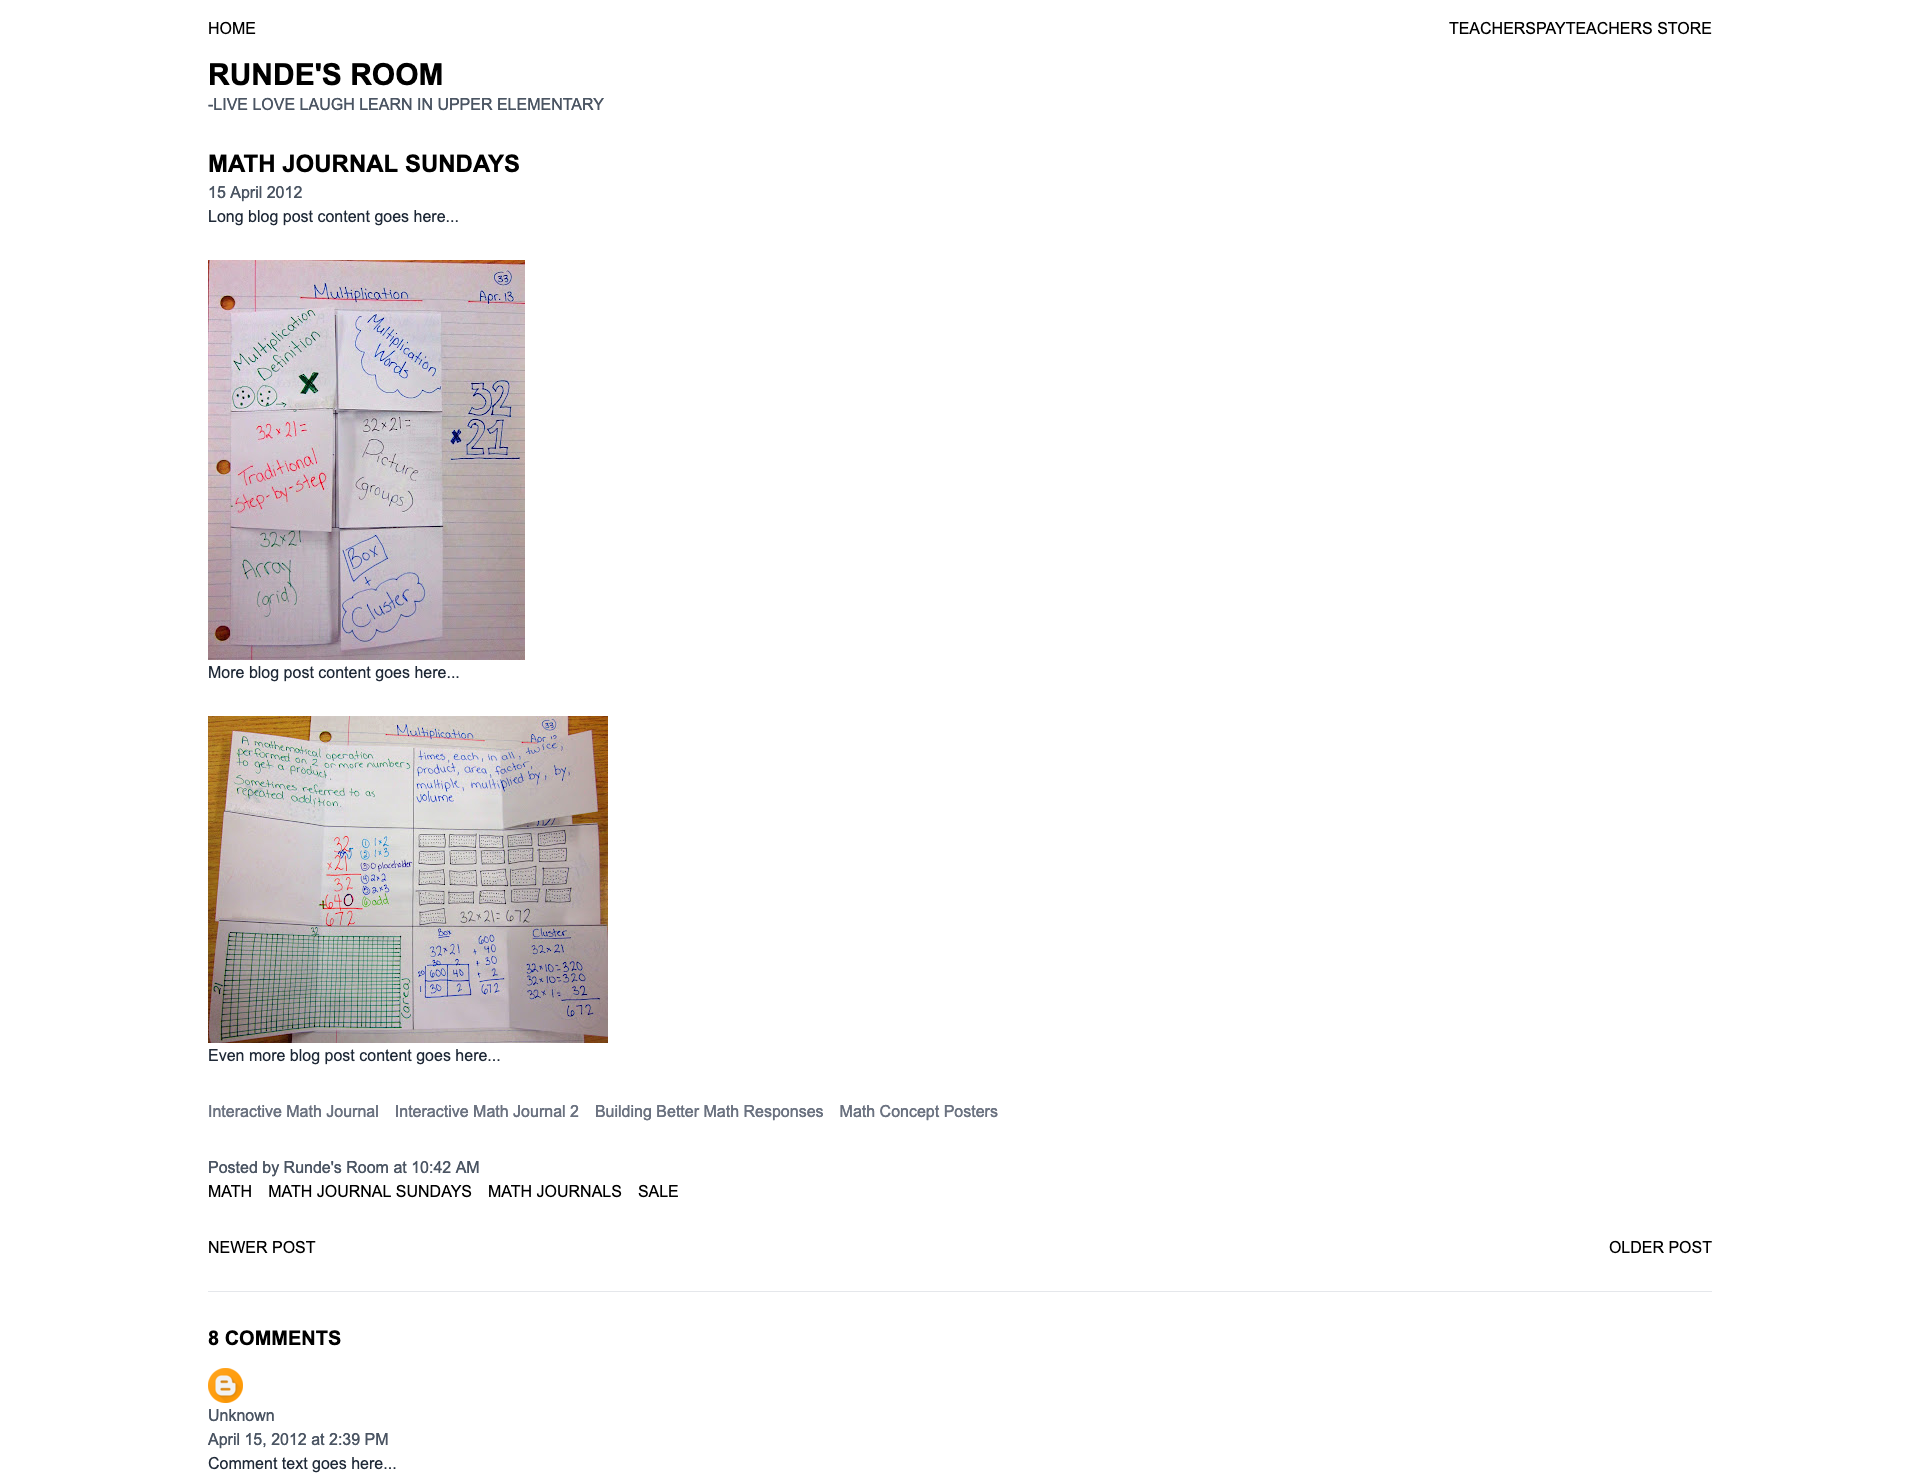 HOME
TEACHERSPAYTEACHERS STORE
RUNDE'S ROOM
-LIVE LOVE LAUGH LEARN IN UPPER ELEMENTARY
MATH JOURNAL SUNDAYS
15 April 2012
Long blog post content goes here...
33
Multiplication
Apr. 13
Multiplication
Definition
x
Multiplication
Words
32
x 21
32 x 21 =
Traditional
step-by-step
32 x 21 =
Picture
(groups)
32 x 21
Array
(grid)
Box
+
Cluster
More blog post content goes here...
33
Multiplication
A mathematical operation
performed on 2 or more numbers
to get a product.
Sometimes referred to as
repeated addition.
times, each, in all, twice,
product, area, factor,
multiple, multiplied by, by,
volume
32
x 21
32
+640
672
① 1x2
② 1x3
③ 0 placeholder
④ 2x2
⑤ 2x3
⑥ add
32 x 21 = 672
32
21
(area)
Box
32 x 21
30 2
20 600 40
1 30 2
600
+ 40
+ 30
+ 2
672
Cluster
32 x 21
32 x 10 = 320
32 x 10 = 320
32 x 1 = 32
672
Even more blog post content goes here...
Interactive Math Journal Interactive Math Journal 2 Building Better Math Responses Math Concept Posters
Posted by Runde's Room at 10:42 AM
MATH MATH JOURNAL SUNDAYS MATH JOURNALS SALE
NEWER POST
OLDER POST
8 COMMENTS
Unknown
April 15, 2012 at 2:39 PM
Comment text goes here...